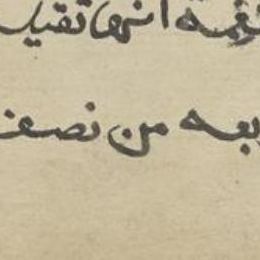 نغمة انها تقيل
ربعه من نصف